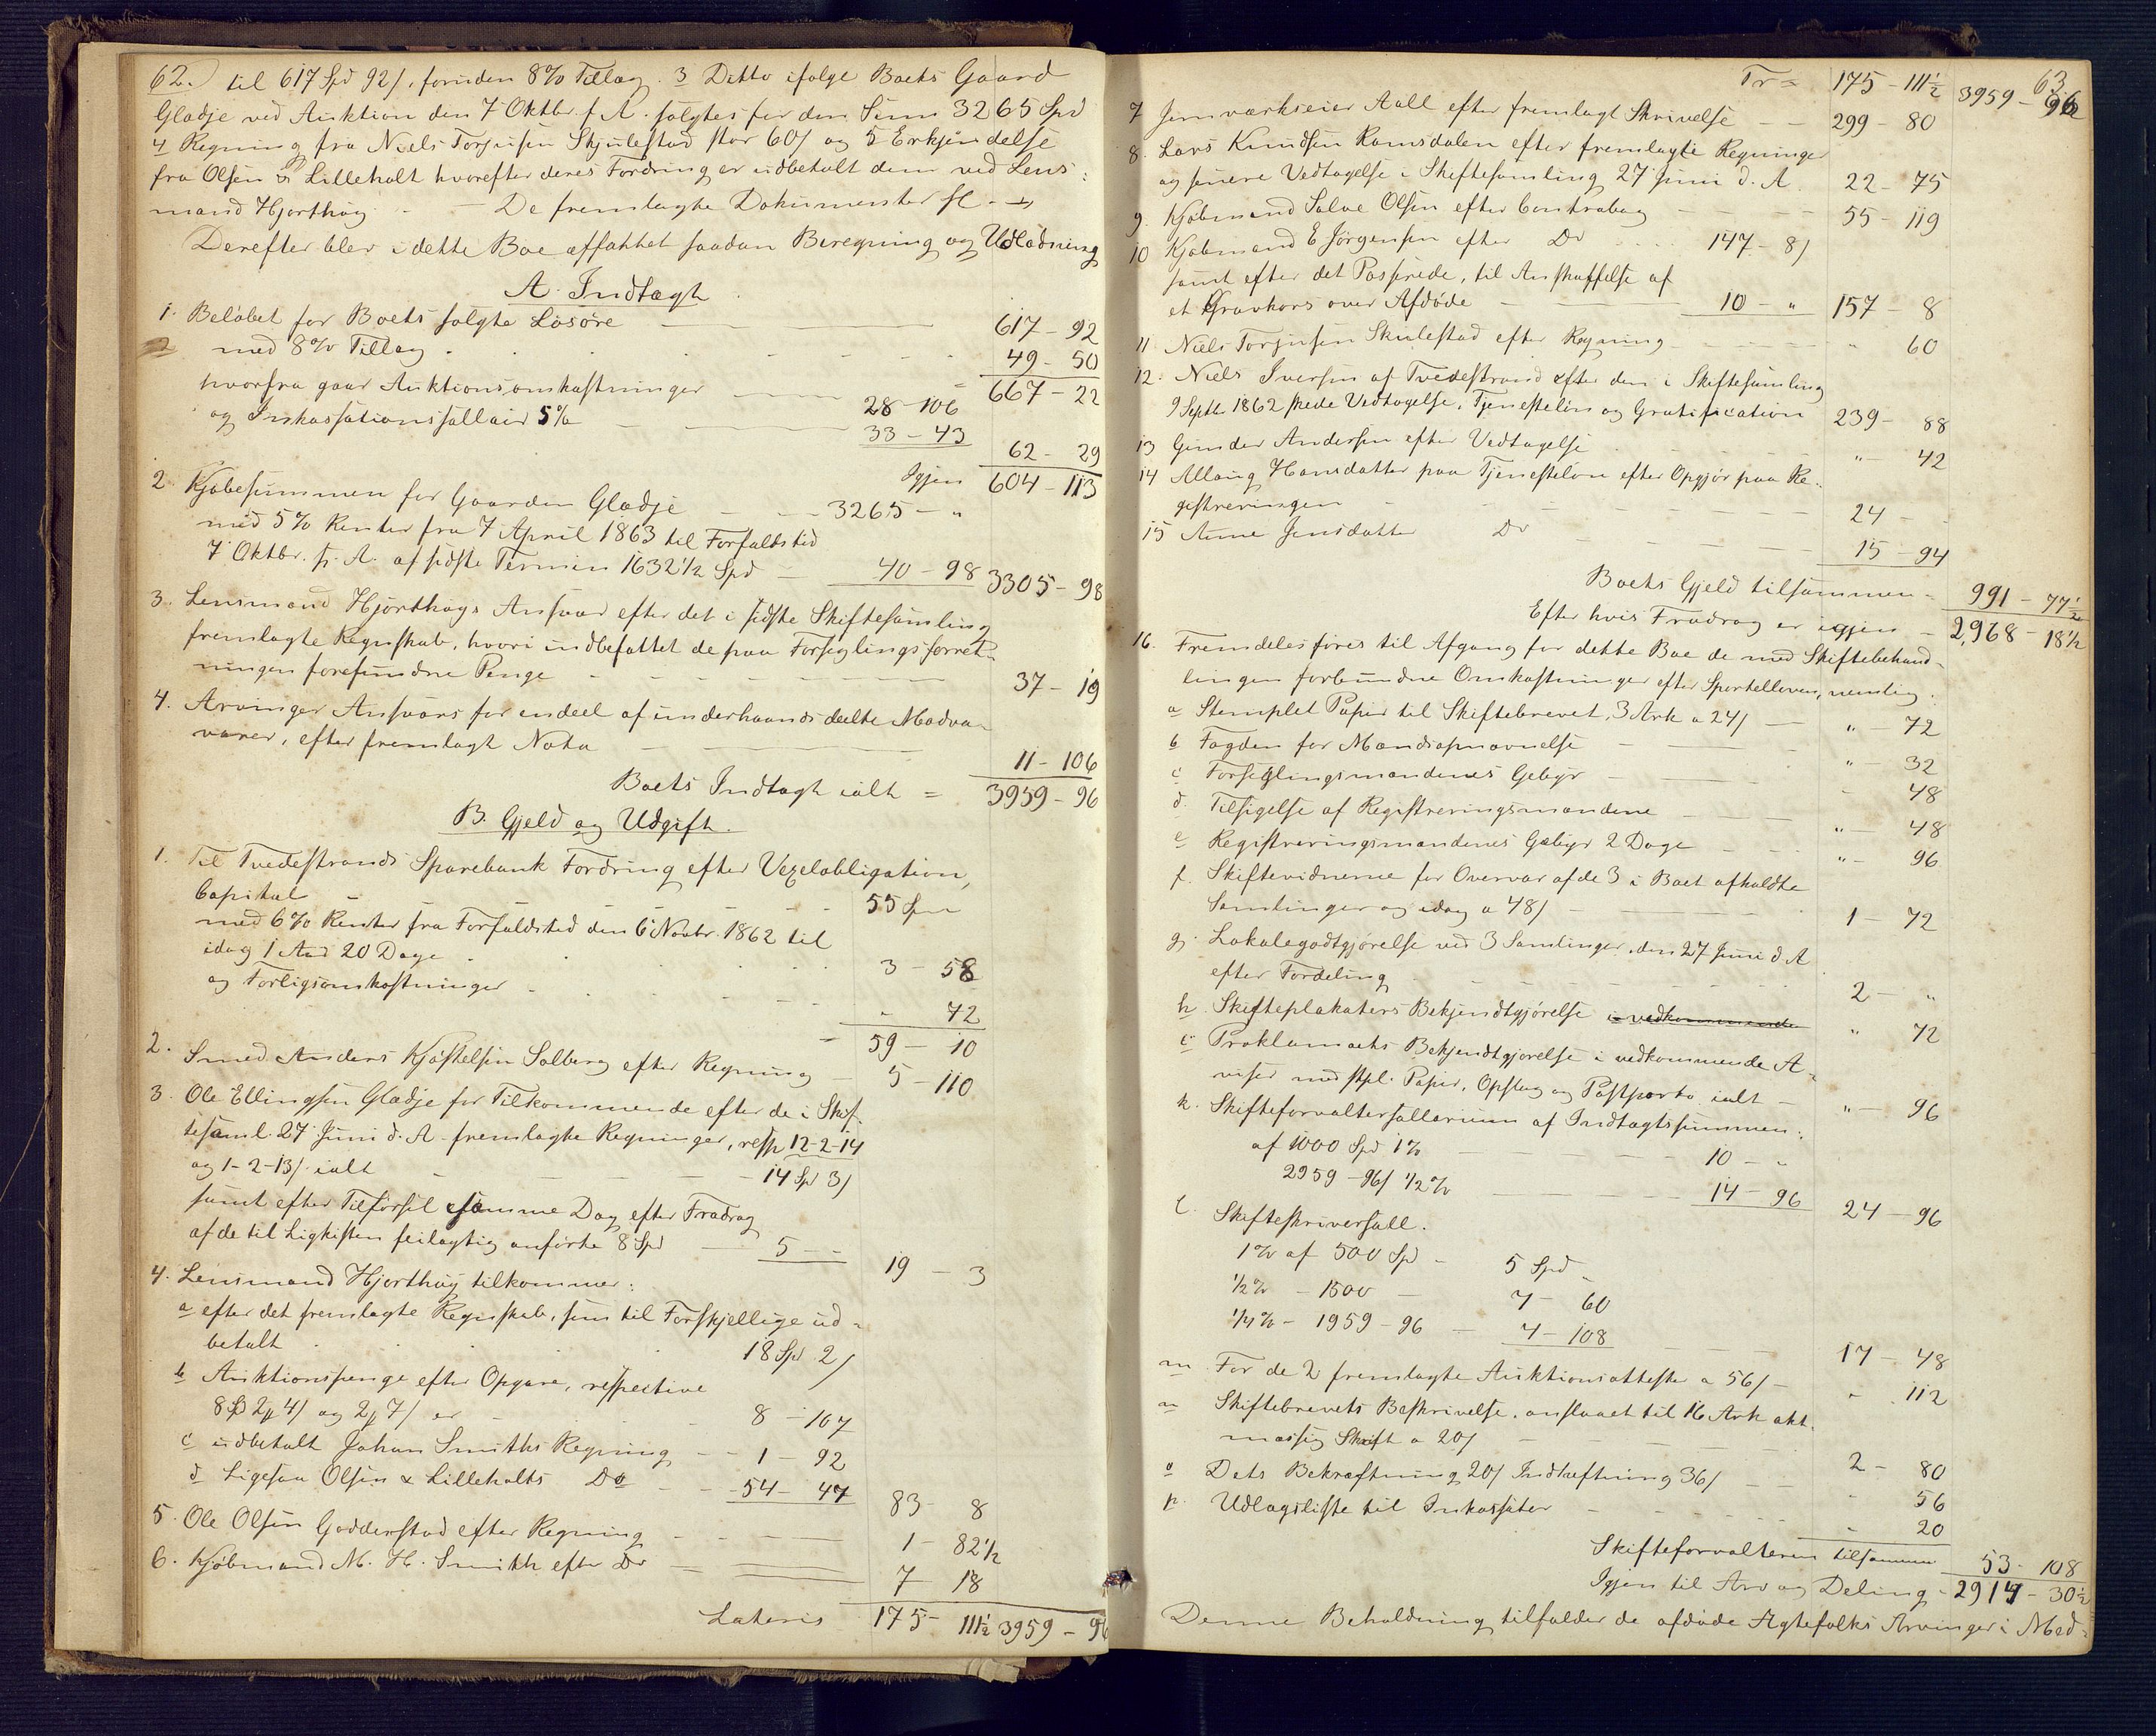 62.) til 617 Spd 92/, foruden 8% Tillæg. 3 Ditto ifølge Boets Gaard
Glødje ved Auktion den 7 Oktbr. f A. solgtes for den Sum 3265 Spd
4 Regning fra Niels Torjusen Skjulestad stor 60/ og 5 Erkjendelse
fra Olsen & Lilleholt hvorefter deres Fordringer er udbetalt dem ved Lens:
mand Hjorthøy - De fremlagte Dokumenter fl.
Derefter blev i dette Boe affattet saadan Beregning og Udlodning
A. Indtægt.
1. Beløbet for Boets solgte Løsøre 617 - 92
med 8% Tillæg 49 - 50
667 - 22
hvorfra gaar Auktionsomkostninger 28 - 106
og Inkassationssallair 5% 33 - 43
62 - 29
Igjen 604 - 113
2. Kjøbesummen for Gaarden Glødje 3265 - "
med 5% Renter fra 7 April 1863 til Forfaldstid
7 Oktbr. f. A. af sidste Termin 1632 1/2 Spd 40 - 98 3305 - 98
3. Lensmand Hjorthøys Ansvar efter det i sidste Skiftesamling
fremlagte Regnskab, hvori indbefattet de paa Forseglingsforret-
ningen forefundne Penge 37 - 19
4. Arvinger Ansvars for endeel af underhaands deelte Madva-
varer, efter fremlagt Nota 11 - 106
Boets Indtægt ialt = 3959 - 96
B. Gjeld og Udgift.
1. Til Tvedestrands Sparebank Fordring efter Vexelobligation,
Capital 55 Spd
med 6% Renter fra Forfaldstid den 6 Novbr. 1862 til
idag 1 Aar 20 Dage 3 - 58
og Forligsomkostninger - 72
= 59 - 10
2. Smed Anders Kjøstelsen Solberg efter Regning 5 - 110
3. Ole Ellingsen Glødje for Tilkommende efter de i Skif-
tesaml. 27 Juni d. A. fremlagte Regninger, resp 12-2-14
og 1-2-13/. ialt 14 Spd 3/
samt efter Tilførsel samme Dag efter Fradrag
af de til Ligkisten feilagtig anførte 8 Spd 5 - - 19 - 3
4. Lensmand Hjorthøy tilkommer:
a efter det fremlagte Regnskab, som til Forskjellige ud-
betalt 18 Spd 2/
b Auktionspenge efter Opgave, respective
8 Spd 2 4/ og 2 7/ er 8 - 107
c udbetalt Johan Smiths Regning 1 - 92
d Ligesaa Olsen & Lilleholts Do 54 - 47 83 - 8
5. Ole Olsen Godderstad efter Regning 1 - 82 1/2
6. Kjøbmand M. H. Smith efter Do 7 - 18
Lateris 175 - 111 1/2 3959 - 96
63.
Tr = 175 - 111 1/2 3959 - 96
7 Jernværkseier Aall efter fremlagt Skrivelse 299 - 80
8. Lars Knudsen Ramsdalen efter fremlagte Regninger
og senere Vedtagelse i Skiftesamling 27 Juni d. A. 22 - 75
9. Kjøbmand Salve Olsen efter Contrabog 55 - 119
10 Kjøbmand E Jørgensen efter Do 147 - 8/
samt efter det Passerede, til Anskaffelse af
et Gravkors over Afdøde 10 - " 157 - 8
11. Niels Torjusen Skulestad efter Regning " 60
12. Niels Iversen af Tvedestrand efter den i Skiftesamling
9 Septbr 1862 skede Vedtagelse, Tjenesteløn og Gratification 239 - 88
13 Gunder Andersen efter Vedtagelse " - 42
14 Allaug Hansdatter paa Tjenesteløn efter Opgjør paa Re-
gistreringen 24 -
15 Anne Jensdatter Do 15 - 94
Boets Gjeld tilsammen = 991 - 77 1/2
Efter hvis Fradrag er igjen - 2,968 - 18 1/2
16. Fremdeles føres til Afgang for dette Boe de med Skiftebehand-
lingen forbundne Omkostninger efter Sportelloven, nemlig:
a Stemplet Papir til Skiftebrevet, 3 Ark a 24/ " - 72
b Fogden for Mandsopnævnelse " - 32
c Forseglingsmændenes Gebyr - 48
d. Tilsigelse af Registreringsmændene " - 48
e Registreringsmændenes Gebyr 2 Dage " - 96
f. Skiftevidnerne for Overvær af de 3 i Boet afholdte
Samlinger og idag a 48/ 1 - 72
g. Lokalegodtgjørelse ved 3 Samlinger, den 27 Juni d A
efter Fordeling 2 - "
h Skifteplakaters Bekjendtgjørelse i vedkommende " 72
i Proklamaets Bekjendtgjørelse i vedkommende A-
viser med stpl. Papir, Opslag og Postporto ialt - " - 96
k. Skifteforvaltersallarium af Indtægtssummen:
af 1000 Spd 1% 10 - -
2959 - 96/ 1/2% 14 - 96 24 - 96
l. Skifteskriversall.
1% af 500 Spd - 5 Spd -
1/2% - 1500 - 7 - 60
1/4% - 1959 - 96 - 4 - 108 17 - 48
m For de 2 fremlagte Auktionsatteste a 56/ - - 112
n Skiftebrevets Beskrivelse, anslaaet til 16 Ark akt-
mæssig Skrift a 20/ 2 - 80
o Dets Bekræftning 20/ Indhæftning 36/ - 56
p. Udlægsliste til Inkassator - 20
Skifteforvalteren tilsammen 53 - 108
Igjen til Arv og Deling - 2914 - 30 1/2
Denne Beholdning tilfalder de afdøde Ægtefolks Arvinger i Med-